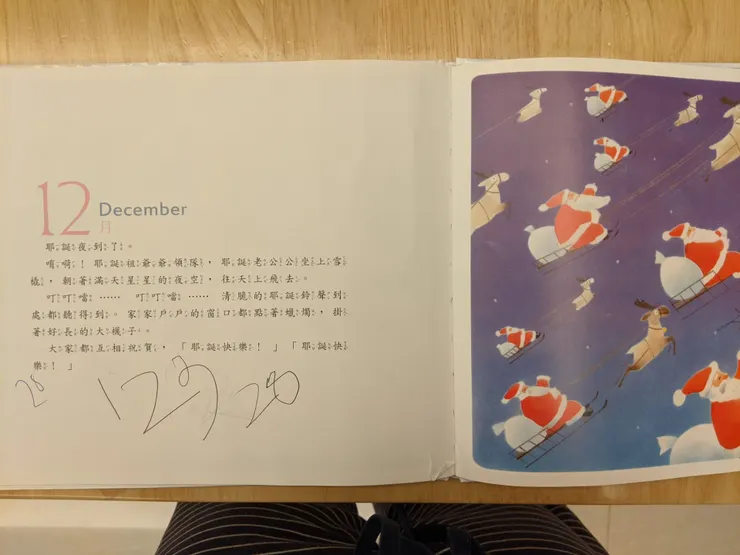 12
月
December
耶誕夜到了。
唷荷!耶誕祖爺爺領隊,耶誕老公公坐上雪
橇,朝著滿天星星的夜空,往天上飛去。
叮叮噹⋯⋯ 叮叮噹⋯⋯ 清脆的耶誕鈴聲到
處都聽得到。家家戶戶的窗口都點著蠟燭,掛
著好長的大襪子。
大家都互相祝賀,「耶誕快樂!」「耶誕快
樂!」
20
12月20